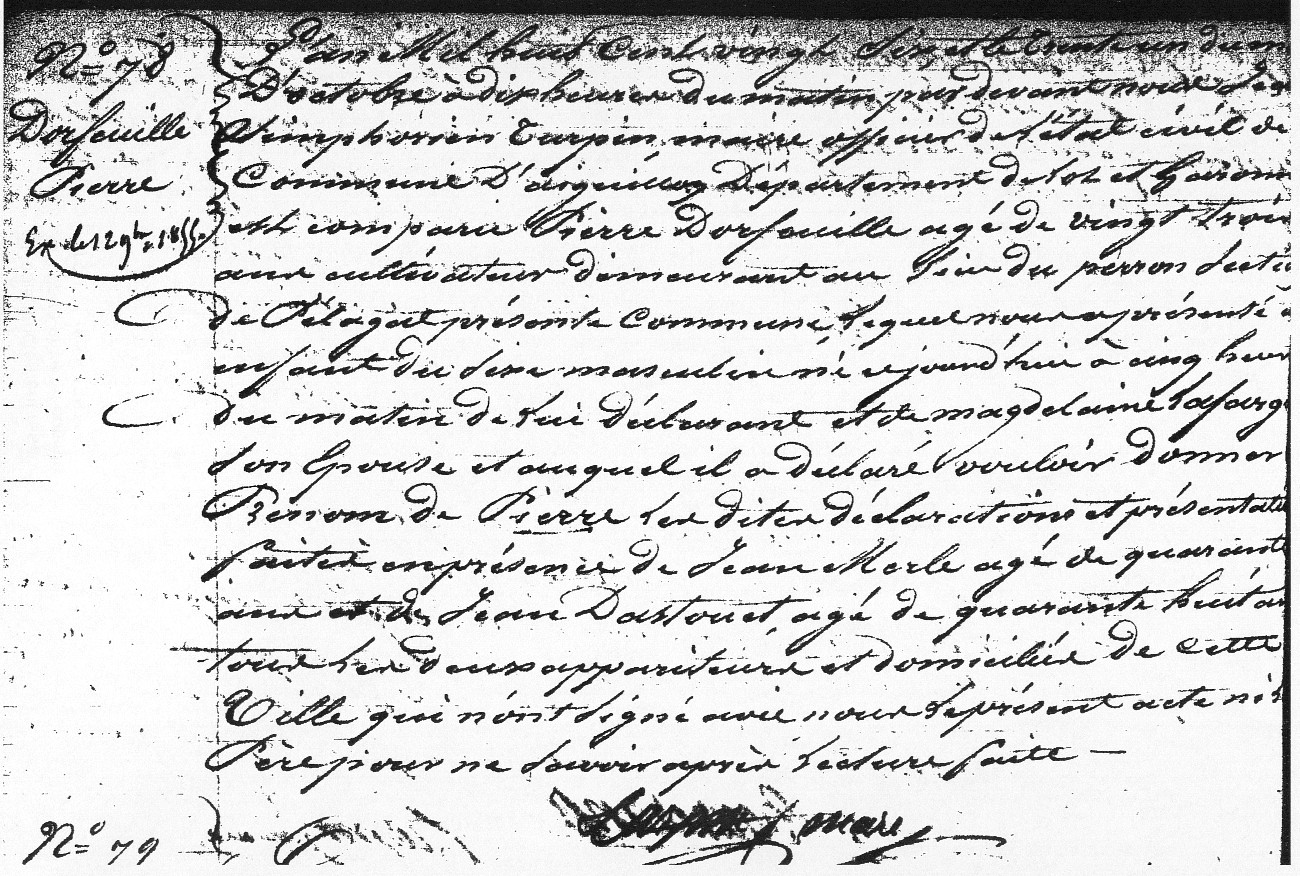 N.º 78
Dorfeüille
Pierre
Ex. le 12 9bre 1855.
L'an Mil huit Cent vingt Six et le trente un du m
D'octobre à dix heures du matin par devant nous
Simphorien Turpin maire officier de l'état civil de
Commune D'aiguillon Département de Lot et Garonn
est comparu Pierre Dorfeuille agé de vingt trois
ans cultivateur demeurant au lieu du perron Secti
de Pélagat présente Commune, lequel nous a présenté
enfant du Sexe masculin né cejourd'hui à cinq heur
du matin de lui déclarant et de magdelaine Lafarg
Son Epouse et auquel il a déclaré vouloir donner
Prénom de Pierre les dites déclarations et présentati
faites en présence de Jean Merle agé de quarante
ans et de Jean Dastouet, agé de quarante huit an
tous les deux appariteurs et domiciliés de cette
Ville qui n'ont Signé avec nous le présent acte ni l
Père pour ne Savoir après lecture faite —
Turpin maire
N.º 79